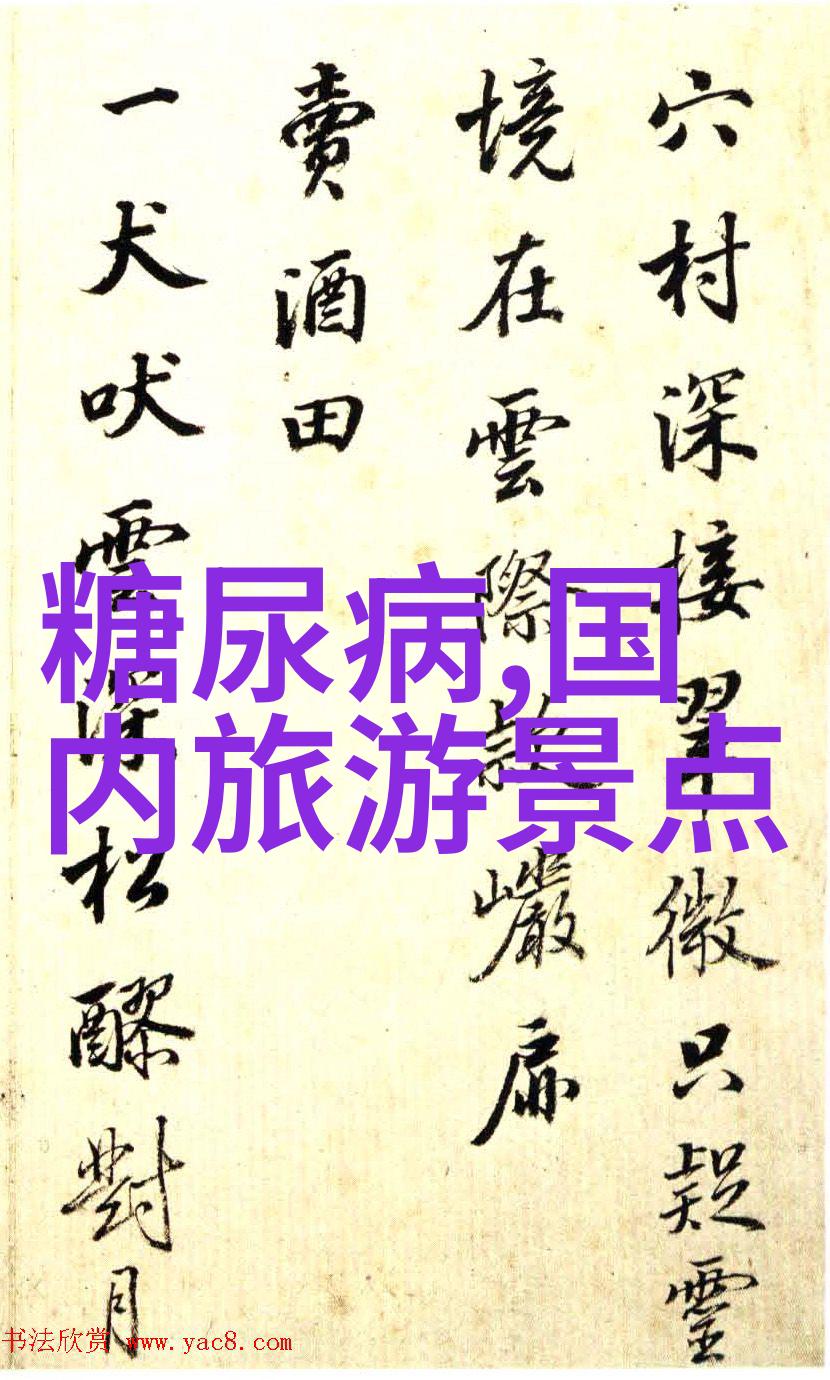 穴村深接翠微只疑靈
境在雲際敲巖扉
賣酒田
一犬吠雲深松醪對月
糖尿病,国
内旅游景点
书法欣赏 www.yac8.com